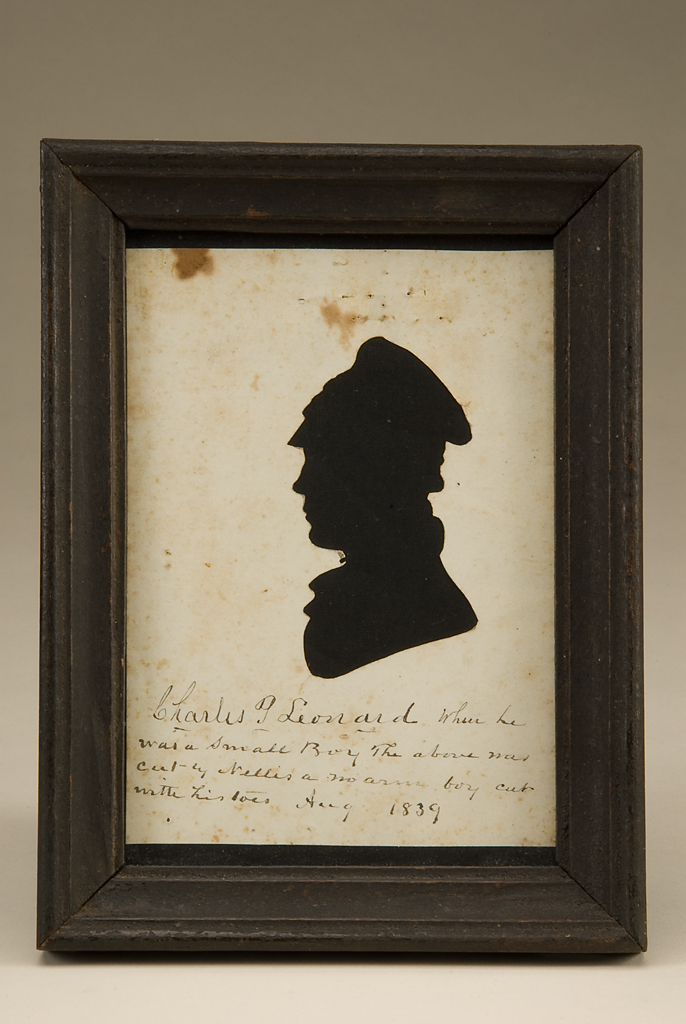 Charles P Leonard when he
was a Small Boy The above was
cut by Nellis a no arm boy cut
with his toes Aug 1839